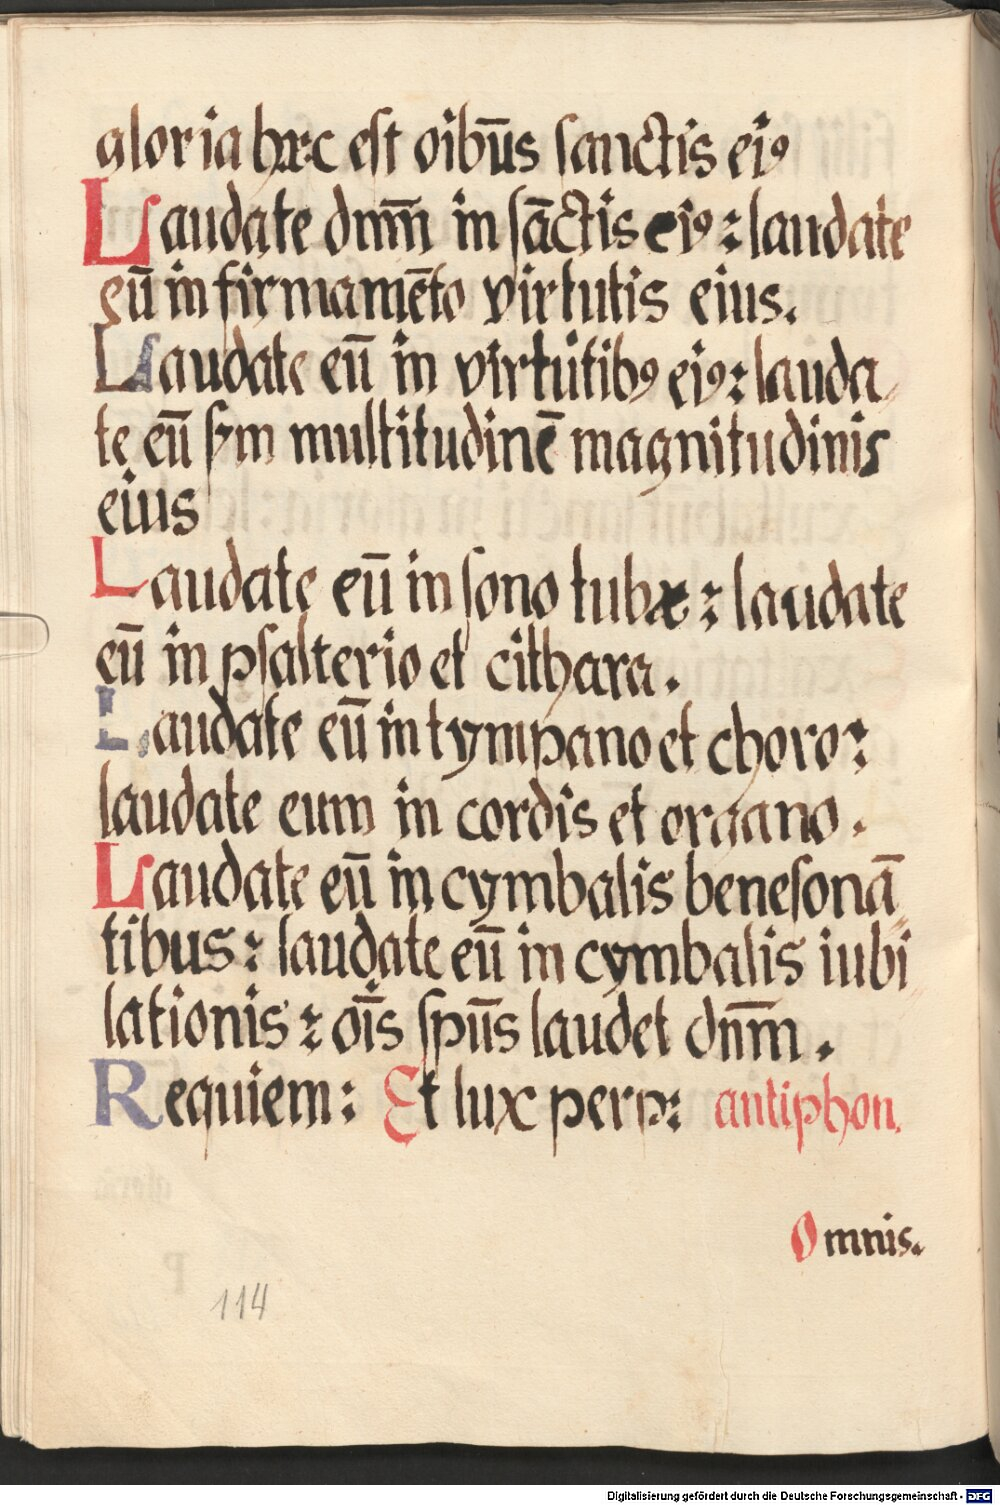 gloria hæc est oib̄us sanctis eiꝰ
Laudate dnm̄ in sāctis eiꝰ: laudate
eū in firmamēto virtutis eius.
Laudate eū in virtutibꝰ eiꝰ: lauda
te eū sm multitudinē magnitudinis
eius
Laudate eū in sono tubæ: laudate
eū in psalterio et cithara.
Laudate eū in tympano et choro:
laudate eum in cordis et organo.
Laudate eū in cymbalis benesonā
tibus: laudate eū in cymbalis iubi
lationis: oīs spūs laudet dnm̄.
Requiem: Et lux perp: antiphon.
Omnis.
114
Digitalisierung gefördert durch die Deutsche Forschungsgemeinschaft - DFG